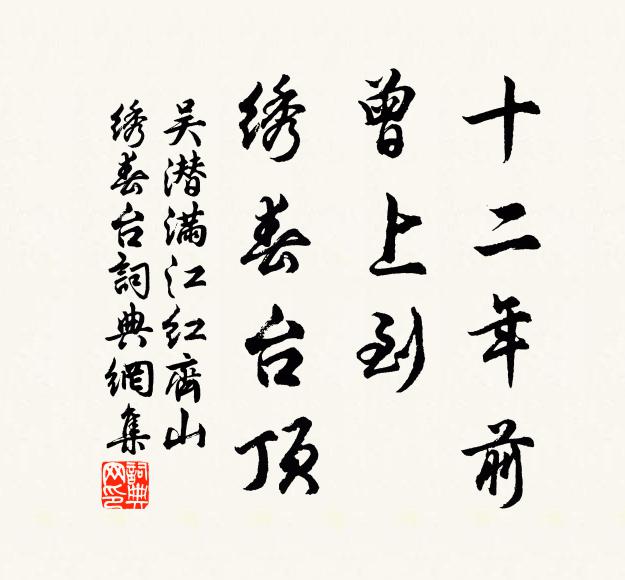 十二年前
曾上到
绣春台顶
吴潜满江红齊山
绣春台詞典網集
詞典网印